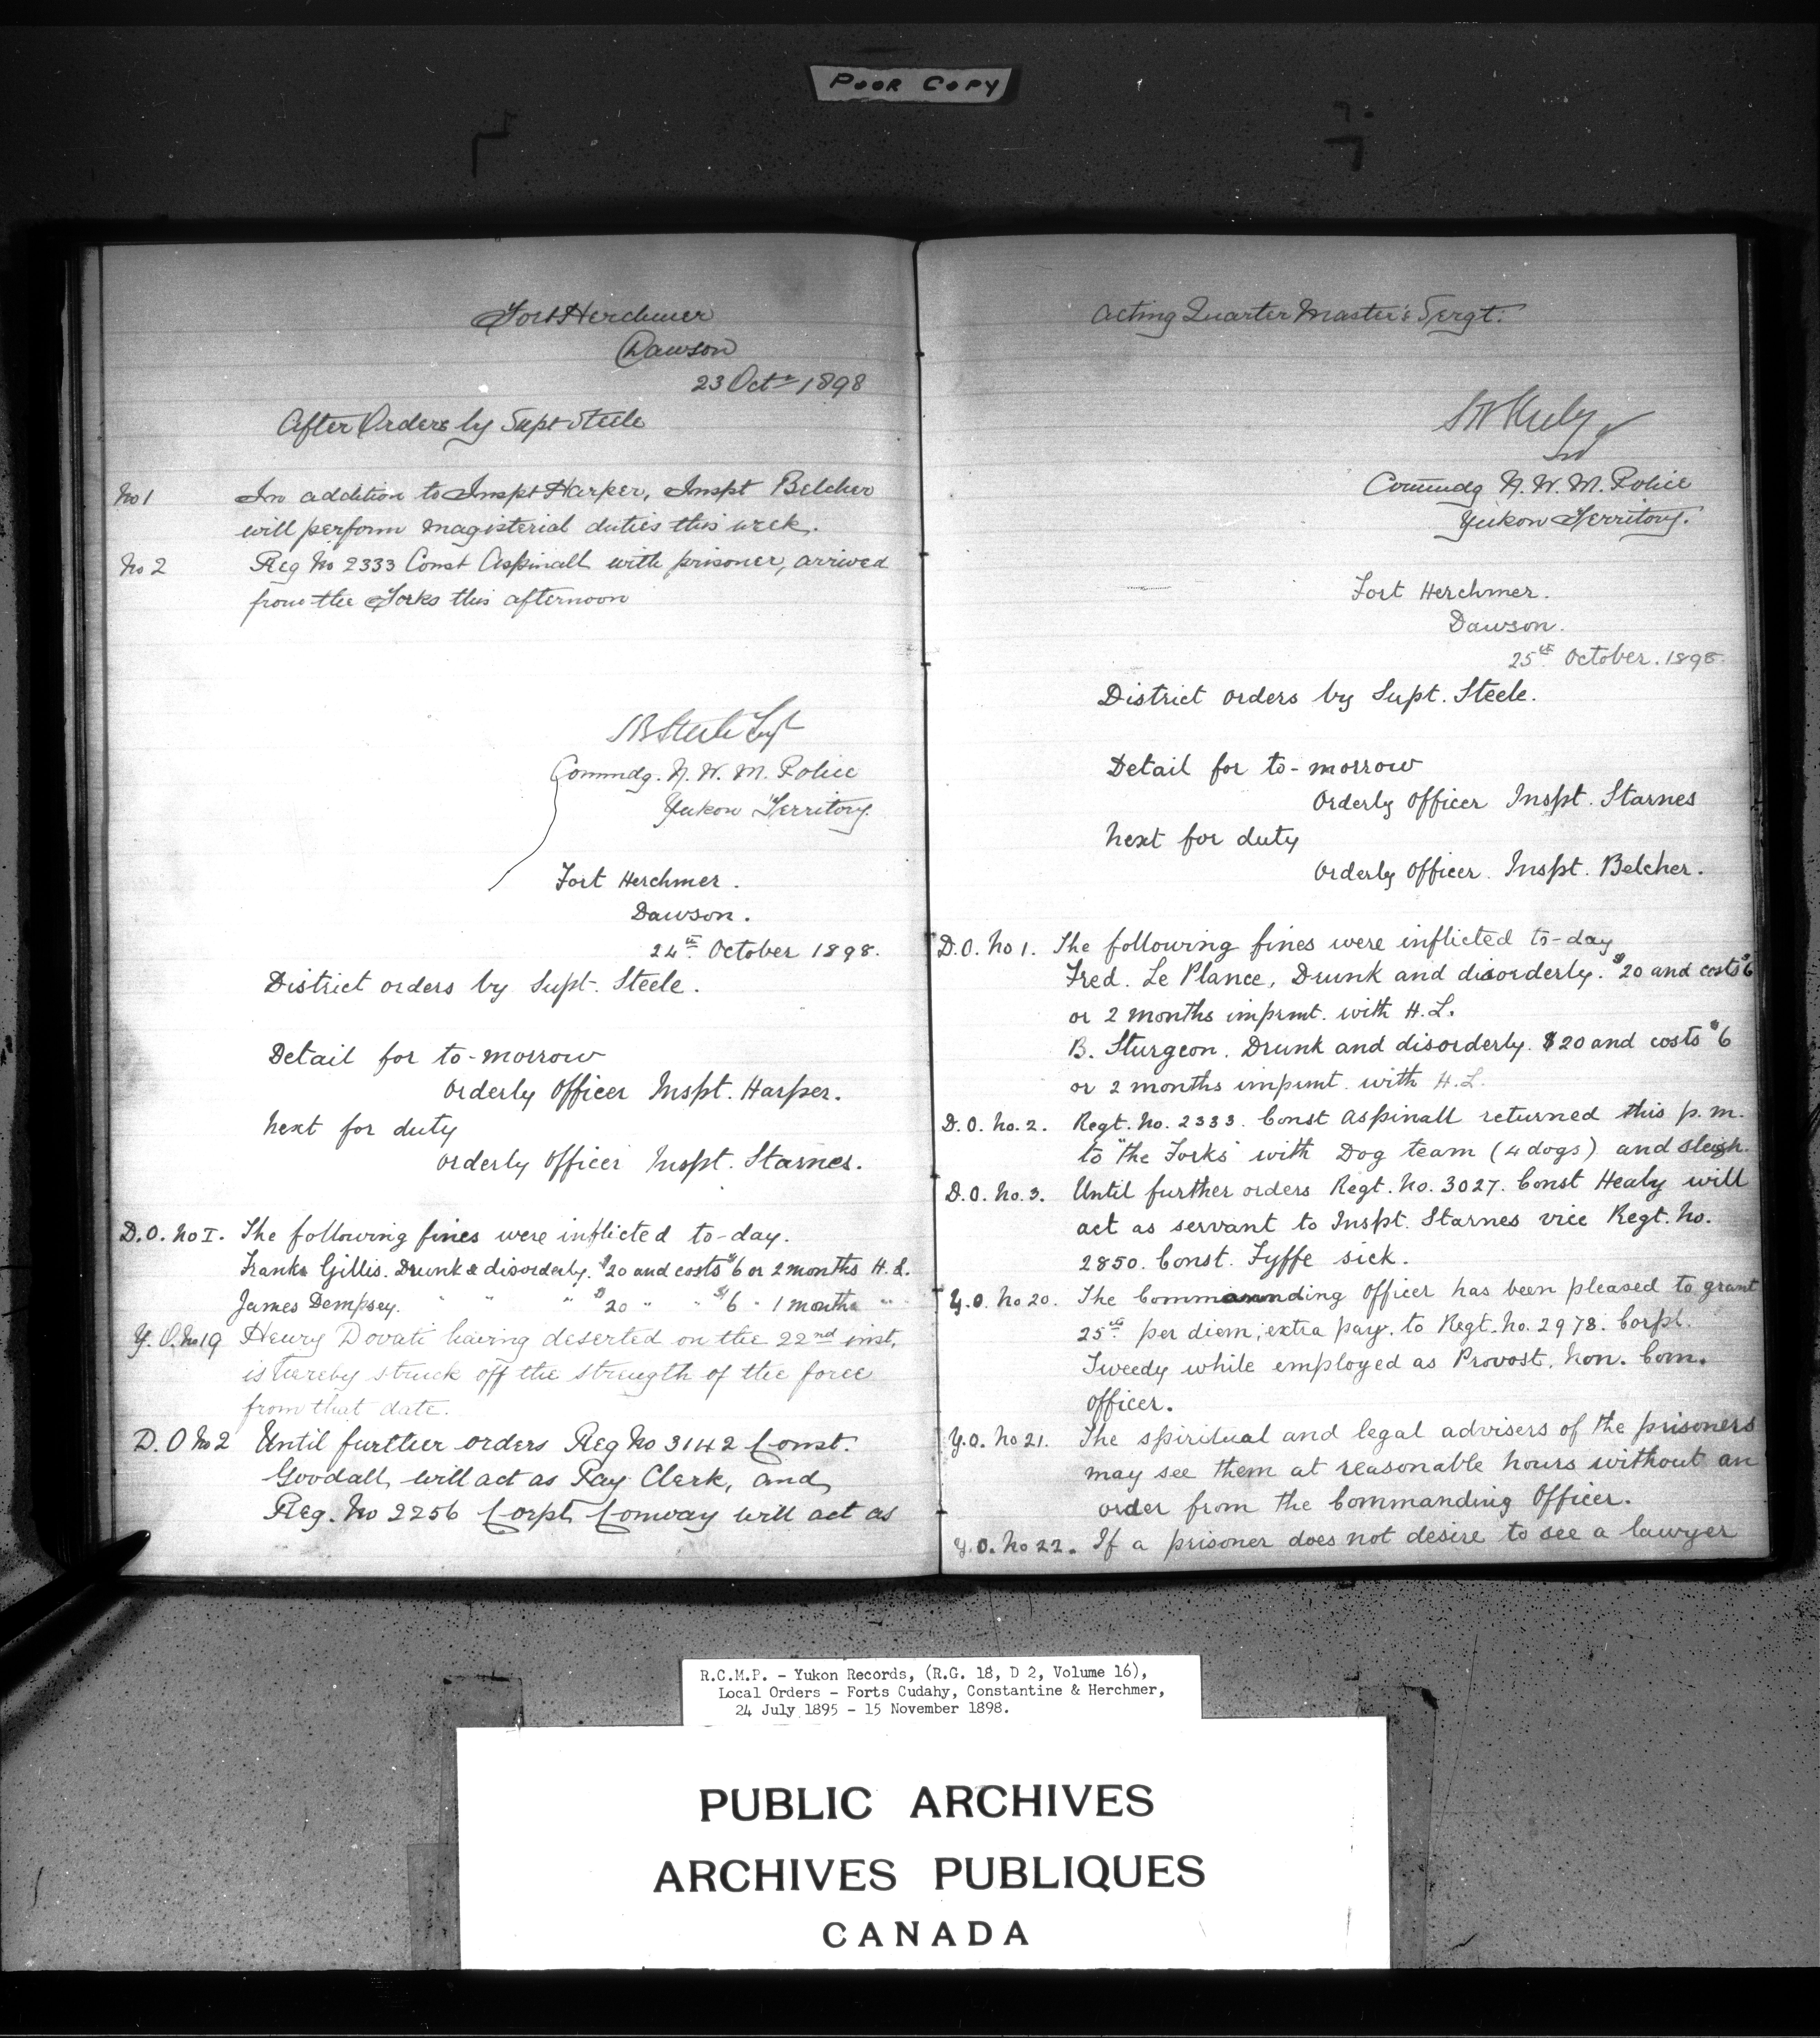 POOR COPY
Fort Herchmer
Dawson
23 Octr 1898
After Orders by Supt Steele
No 1 In addition to Inspt Harper, Inspt Belcher
will perform magisterial duties this week.
No 2 Reg No 2333 Const Aspinall with prisoner, arrived
from the Forks this afternoon
SB Steele Supt
Commdg. N. W. M. Police
Yukon Territory.
Fort Herchmer.
Dawson.
24th October 1898.
District orders by Supt. Steele.
Detail for to-morrow
Orderly Officer Inspt. Harper.
Next for duty
Orderly Officer Inspt. Starnes.
D.O. No I. The following fines were inflicted to-day.
Frank Gillis. Drunk & disorderly. $20 and costs $6 or 2 months H.L.
James Dempsey. " " " $20 " " $6 " 1 month " "
Y.O. No 19 Henry Dovati having deserted on the 22nd inst.
is hereby struck off the strength of the force
from that date.
D.O No 2 Until further orders Reg No 3142 Const.
Goodall, will act as Pay Clerk, and
Reg. No 2256 Corpl Conway will act as
Acting Quarter Master's Sergt.
Commdg N. W. M. Police
Yukon Territory.
Fort Herchmer.
Dawson.
25th October. 1898.
District orders by Supt. Steele.
Detail for to-morrow
Orderly Officer Inspt. Starnes
Next for duty
Orderly Officer. Inspt. Belcher.
D.O. No 1. The following fines were inflicted to-day
Fred. Le Plance, Drunk and disorderly. $20 and costs $6
or 2 months imprmt. with H.L.
B. Sturgeon. Drunk and disorderly. $20 and costs $6
or 2 months imprmt. with H.L.
D.O. No. 2. Regt. No. 2333. Const Aspinall returned this p.m.
to "the Forks" with Dog team (4 dogs) and sleigh.
D.O. No. 3. Until further orders Regt. No. 3027. Const Healy will
act as servant to Inspt. Starnes vice Regt. No.
2850. Const. Fyffe sick.
Y.O. No 20. The Commanding Officer has been pleased to grant
25cts per diem, extra pay. to Regt. No. 2978. Corpl.
Tweedy while employed as Provost. Non. Com.
Officer.
Y.O. No 21. The spiritual and legal advisers of the prisoners
may see them at reasonable hours without an
order from the Commanding Officer.
Y.O. No 22. If a prisoner does not desire to see a lawyer
R.C.M.P. - Yukon Records, (R.G. 18, D 2, Volume 16),
Local Orders - Forts Cudahy, Constantine & Herchmer,
24 July 1895 - 15 November 1898.
PUBLIC ARCHIVES
ARCHIVES PUBLIQUES
CANADA